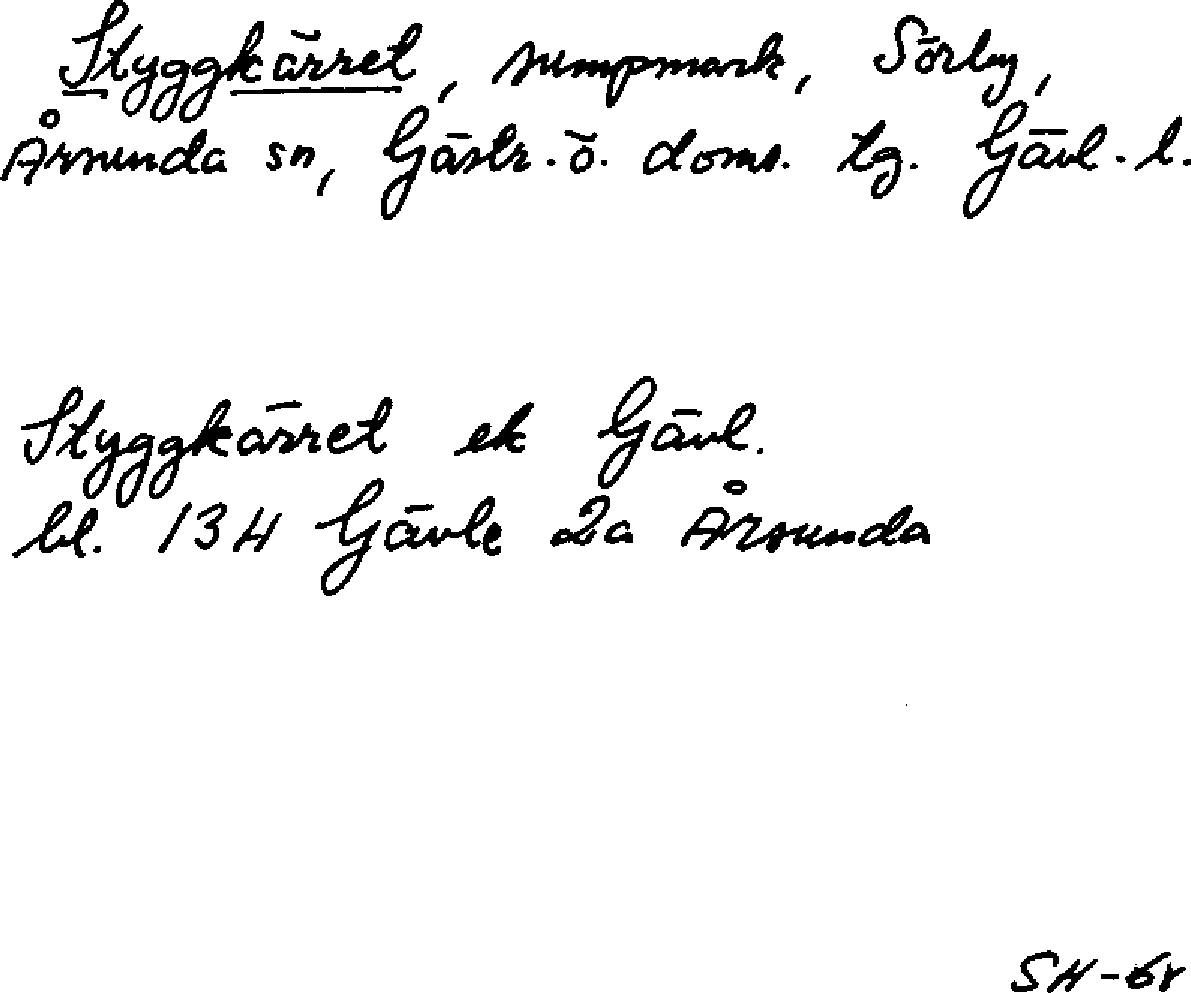 Styggkärret, sumpmark, Sörby,
Årsunda sn, Gästr. ö. doms. tg. Gävl. l.
Styggkärret ek Gävl.
bl. 134 Gävle 2a Årsunda